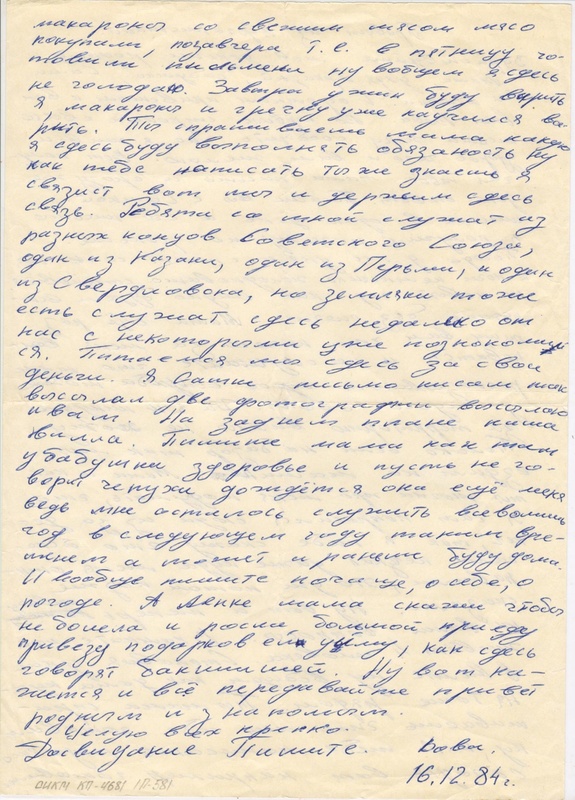 макароны со свежим мясом мясо
покупали, позавчера т.е. в пятницу го-
товили пельмени ну вобщем я здесь
не голодаю. Завтра ужин буду варить
я, макароны и гречку уже научился ва-
рить. Ты спрашиваешь мама какую
я здесь буду выполнять обязаность ну
как тебе написать ты же знаешь я
связист вот мы и держим здесь
связь. Ребята со мной служат из
разных концов Советского Союза,
один из Казани, один из Перьми, и один
из Свердловска, но земляки тоже
есть служат здесь недалеко от
нас с некоторыми уже познокомил
ся. Питаемся мы здесь за свои
деньги. Я Сашки письмо писал так
высылал две фотографии высылаю
и вам. На заднем плане наша
вилла. Пишите мама как там
у бабушки здоровье и пусть не го-
ворит чепухи дождётся она ещё меня
ведь мне осталось служить всеволишь
год в следующем году таким вре-
мнем а может и раньше буду дома.
И вообще пишите почаще, о себе, о
погоде. А Ленке мама скажи чтобы
не болела и росла большой приеду
привезу подарков ей уйму, как здесь
говорят бакшишей. Ну вот ка-
жется и всё передавайте привет
родным и знакомым.
Целую всех крепко.
Досвидание Пишите. Вова.
16.12.84 г.
ОИКМ КП-4681